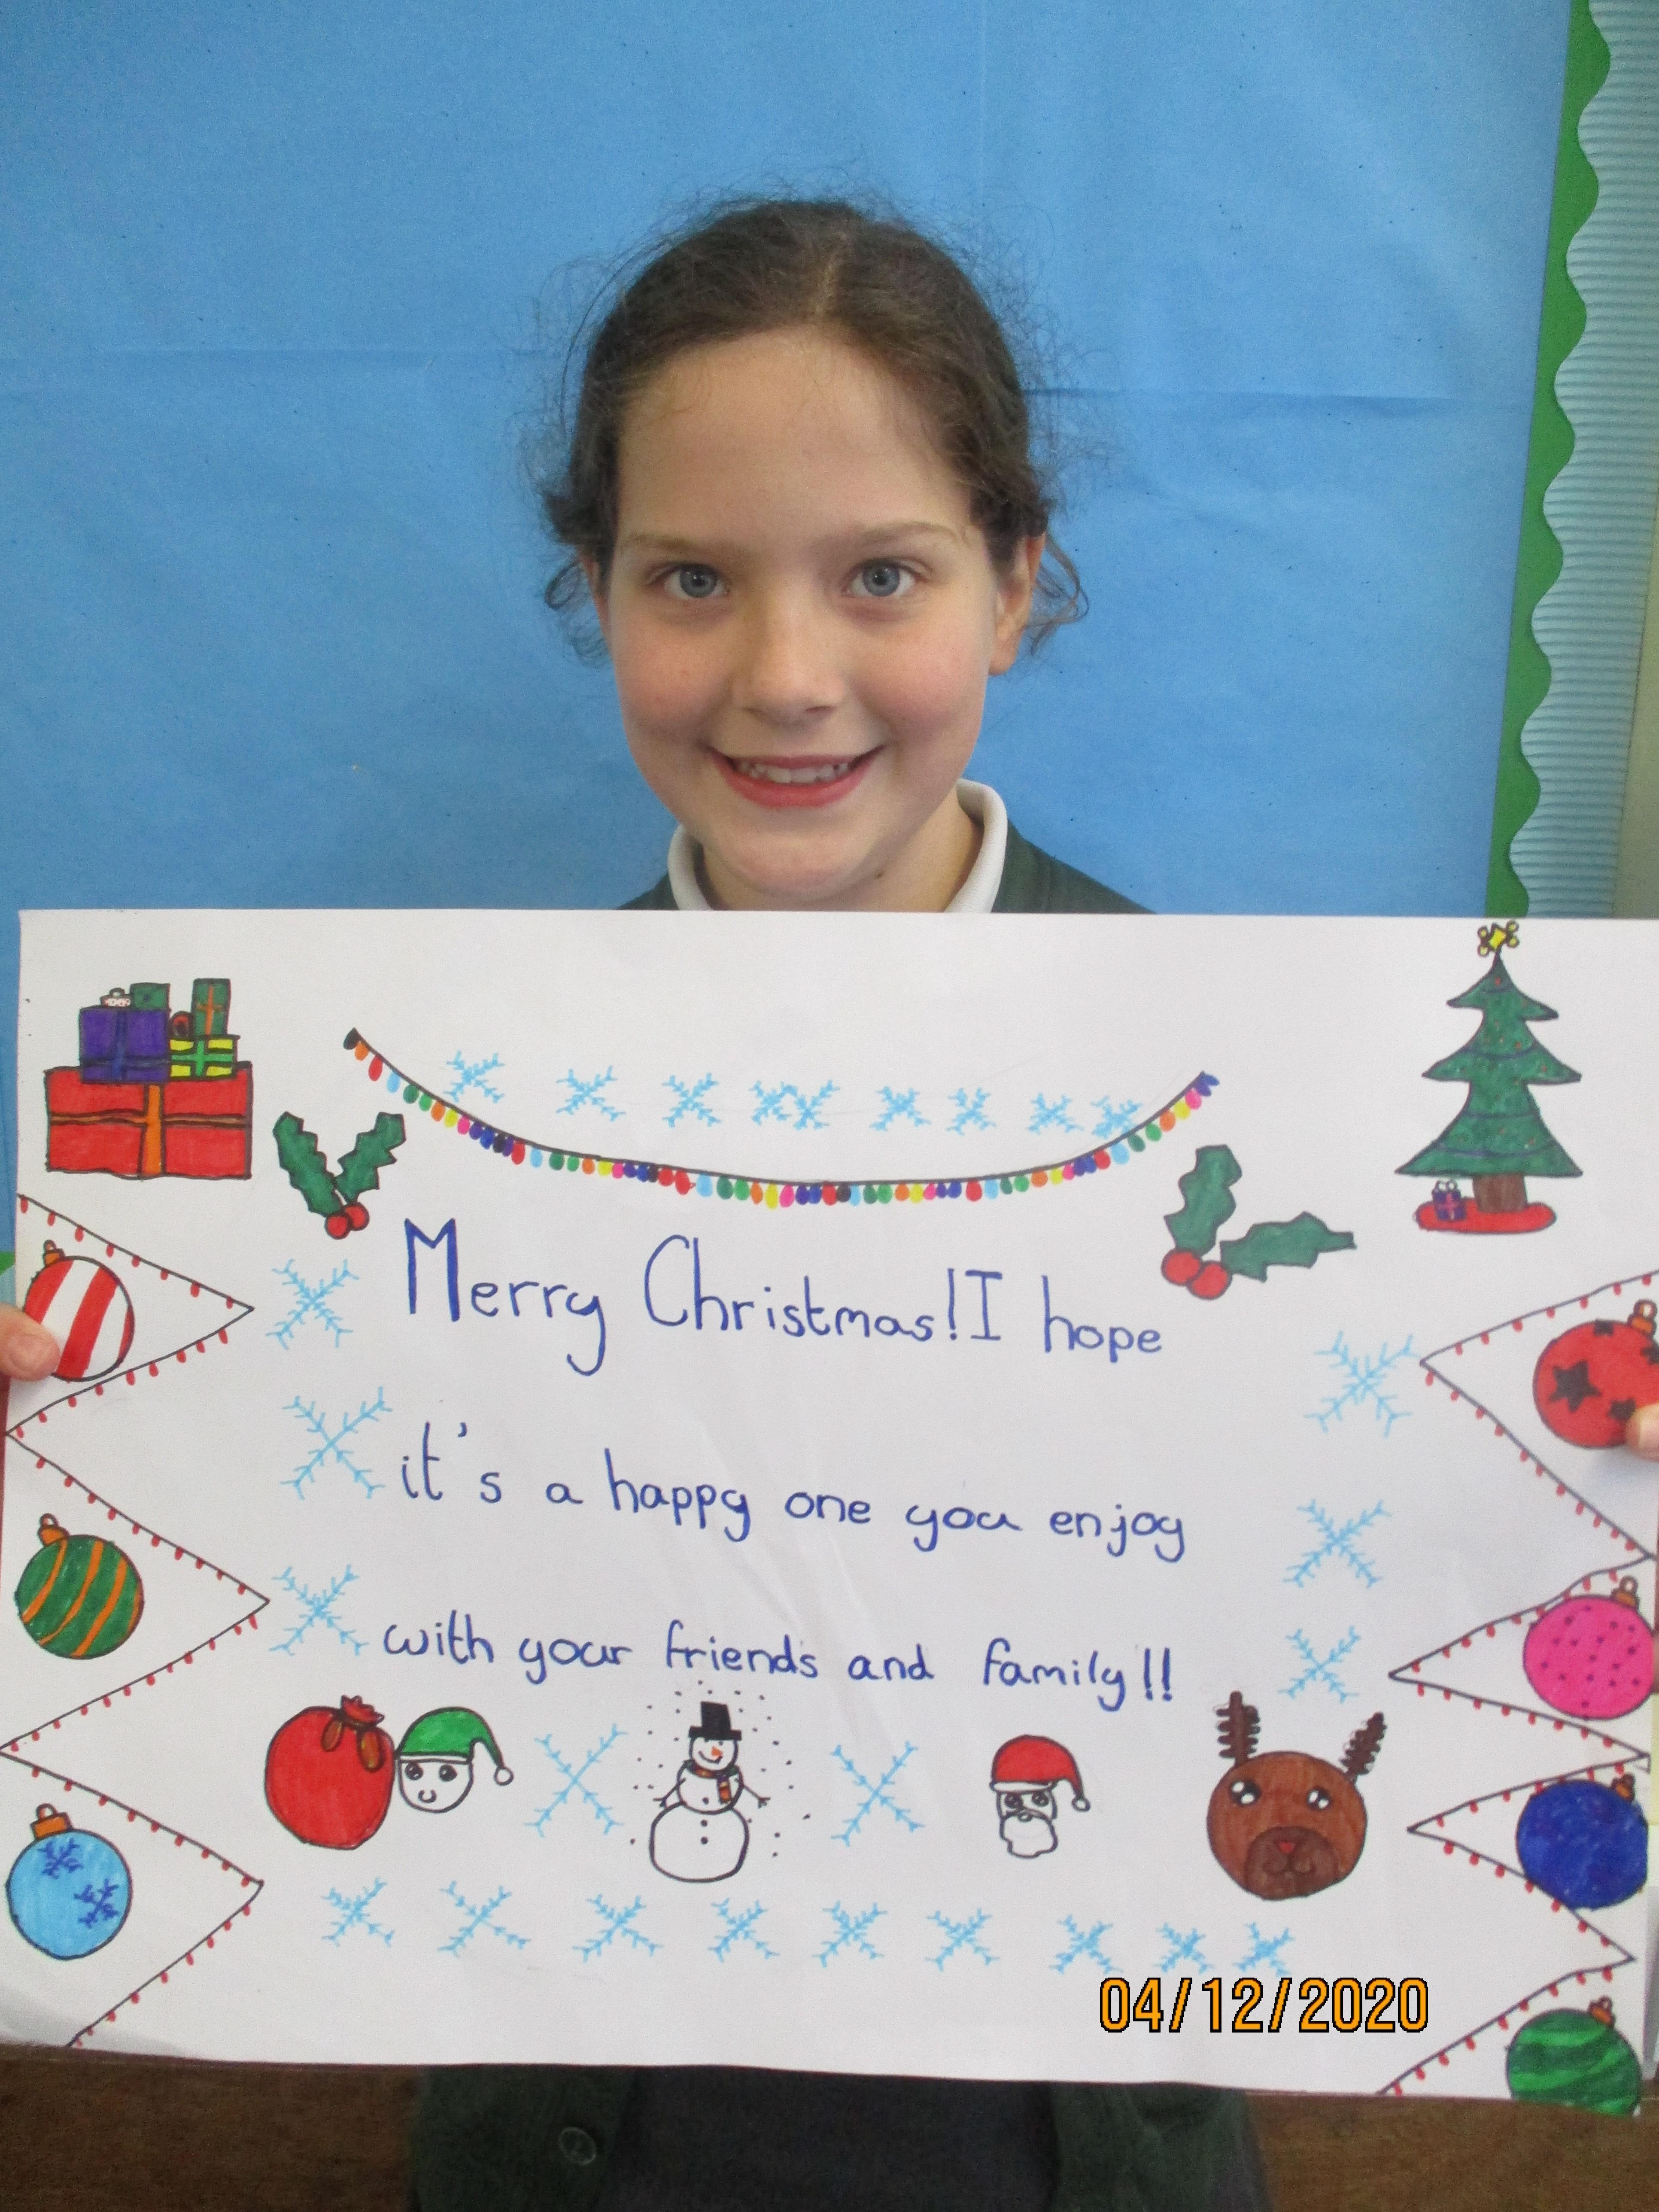 Merry Christmas! I hope
it's a happy one you enjoy
with your friends and family!!
04/12/2020